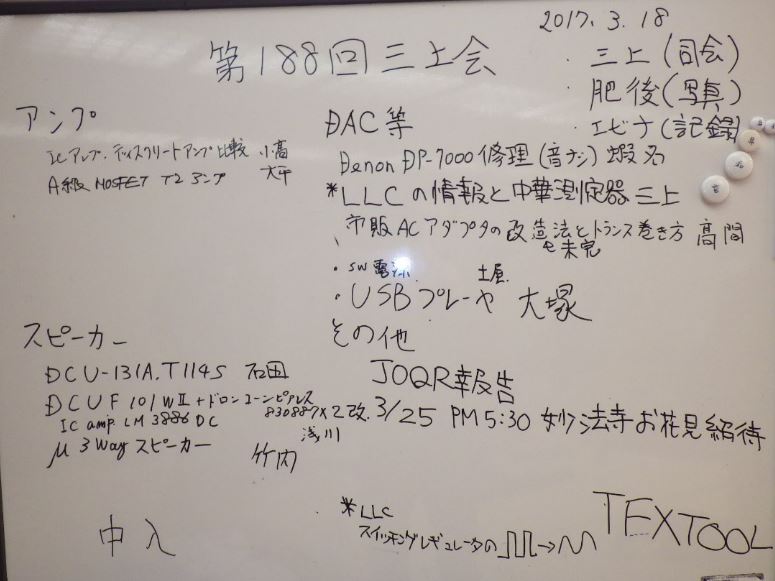 2017. 3. 18
第188回三土会
・三上(司会)
・肥後(写真)
・エビナ(記録)
アンプ
ICアンプ・ディスクリートアンプ比較 小高
A級 MOSFET アンプ 大平
DAC等
Denon DP-7000修理(音ナシ) 蝦名
*LLCの情報と中華測定器 三上
市販ACアダプタの改造法とトランス巻き方 高間
を未完
・SW電源 土屋
・USBプレーヤ 大塚
スピーカー
DCU-131A. T114S 石田
DCUF101WII+ドロンコーンピアレス
830887×2改
IC amp LM3886 DC
浅川
μ3Wayスピーカー 竹内
その他
JOQR報告
3/25 PM5:30 妙法寺お花見招待
中入
*LLC
スイッチングレギュレータの
TEXTOOL